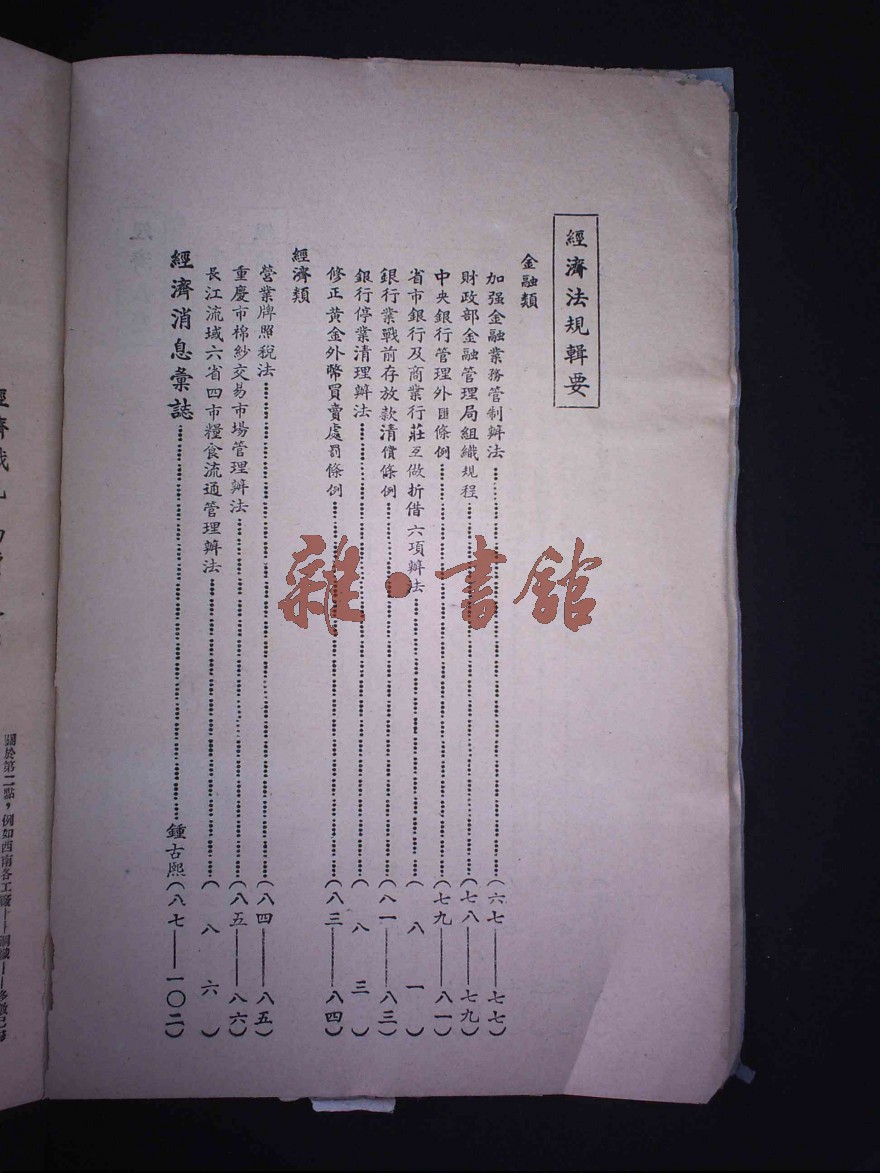 經濟法規輯要
金融類
加强金融業務管制辦法……(六七——七七)
財政部金融管理局組織規程……(七八——七九)
中央銀行管理外匯條例……(七九——八一)
省市銀行及商業行莊互做折借六項辦法……(八一)
銀行業戰前存放款清償條例……(八一——八三)
銀行停業清理辦法……(八三)
修正黃金外幣買賣處罰條例……(八三——八四)
經濟類
營業牌照稅法……(八四——八五)
重慶市棉紗交易市場管理辦法……(八五——八六)
長江流域六省四市糧食流通管理辦法……(八六)
經濟消息彙誌……鍾古熙(八七——一〇二)
雜·書館
關於第二點，例如西南各工廠